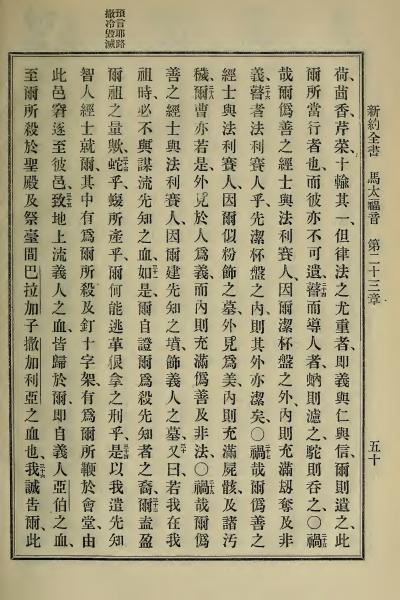 新約全書 馬太福音 第二十三章 五十
荷茴香芹菜十輸其一但律法之尤重者卽義與仁與信爾則遺之此
爾所當行者也而彼亦不可遺瞽而導人者蚋則濾之駝則吞之〇禍
哉爾僞善之經士與法利賽人因爾潔杯盤之外內則充滿刦奪及非
義瞽者法利賽人乎先潔杯盤之內則其外亦潔矣〇禍哉爾僞善之
經士與法利賽人因爾似粉飾之墓外見爲美內則充滿屍骸及諸汚
穢爾曹亦若是外見於人爲義而內則充滿僞善及非法〇禍哉爾僞
善之經士與法利賽人因爾建先知之墳飾義人之墓又曰若我在我
祖時必不與謀流先知之血如是爾自證爾爲殺先知者之裔爾盍盈
爾祖之量歟蛇乎蝮所產乎爾何能逃革很拿之刑乎是以我遣先知
智人經士就爾其中有爲爾所殺及釘十字架有爲爾所鞭於會堂由
此邑窘逐至彼邑致地上流義人之血皆歸於爾卽自義人亞伯之血
至爾所殺於聖殿及祭臺間巴拉加子撒加利亞之血也我誠告爾此
預言耶路
撒冷毀滅